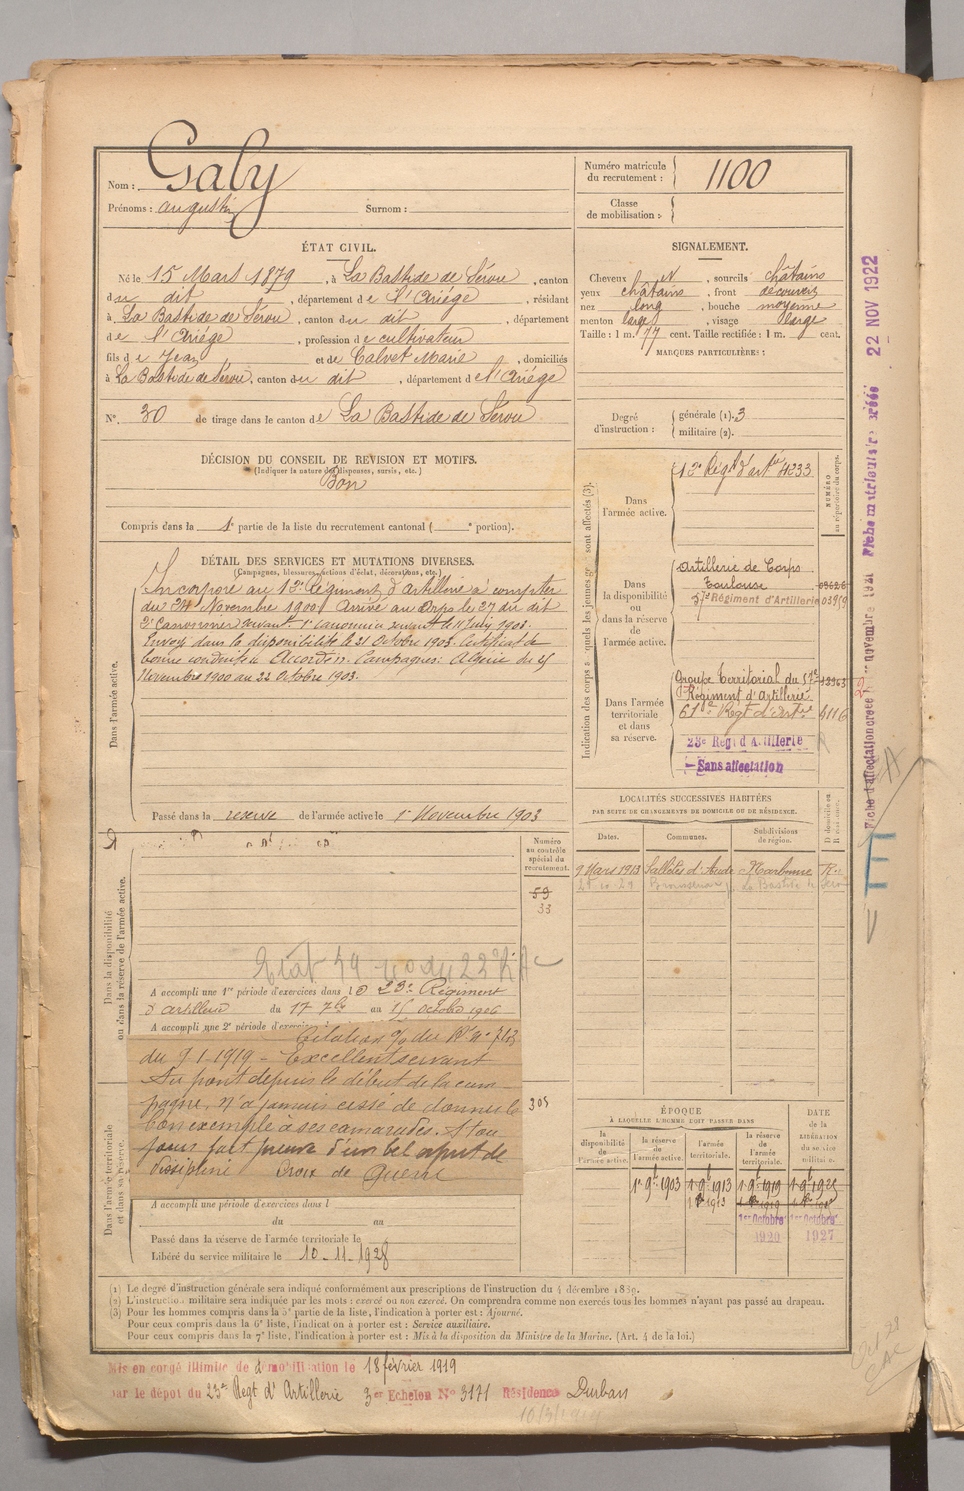 Nom : Galy
Prénoms : augustin Surnom :
Numéro matricule du recrutement : 1100
Classe de mobilisation :
ÉTAT CIVIL.
Né le 15 Mars 1879, à La Bastide de Sérou, canton
du dit, département de l'Ariége, résidant
à La Bastide de Sérou, canton du dit, département
de l'Ariége, profession de cultivateur
fils de Jean et de Calvet Marie, domiciliés
à La Bastide de Sérou, canton du dit, département de l'Ariége
N° 30 de tirage dans le canton de La Bastide de Sérou
SIGNALEMENT.
Cheveux N, sourcils châtains
yeux châtains, front découvert
nez long, bouche moyenne
menton large, visage large
Taille : 1 m. 77 cent. Taille rectifiée : 1 m. cent.
MARQUES PARTICULIÈRES :
Degré d'instruction : générale (1). 3
militaire (2).
DÉCISION DU CONSEIL DE REVISION ET MOTIFS.
(Indiquer la nature des dispenses, sursis, etc.)
Bon
Compris dans la 1e partie de la liste du recrutement cantonal ( e portion).
DÉTAIL DES SERVICES ET MUTATIONS DIVERSES.
(Campagnes, blessures, actions d'éclat, décorations, etc.)
Dans l'armée active.
Incorporé au 12e Régiment d'artillerie à compter
du 24 Novembre 1900. Arrivé au Corps le 27 du dit
2e Canonnier servant. 1er canonnier servant le 11 July 1903.
Envoyé dans la disponibilité le 21 Octobre 1903. Certificat de
bonne conduite Accordé. Campagnes: Algérie du 25
Novembre 1900 au 22 Octobre 1903.
Passé dans la réserve de l'armée active le 1er Novembre 1903
Indication des corps auxquels les jeunes gens sont affectés (3).
NUMÉRO au répertoire du corps.
Dans l'armée active. 12e Régt d'artie 4233
Dans la disponibilité ou dans la réserve de l'armée active.
Artillerie de Corps
Toulouse
57e Régiment d'Artillerie
Dans l'armée territoriale et dans sa réserve.
Groupe Territorial du 57e
Régiment d'Artillerie
61e Régt d'artie
23e Régt d'Artillerie
Sans affectation
22 NOV 1922
LOCALITÉS SUCCESSIVES HABITÉES
PAR SUITE DE CHANGEMENTS DE DOMICILE OU DE RÉSIDENCE.
Dates. Communes. Subdivisions de région. D domicile ou R résidence.
9 Mars 1913 Sallèles d'Aude Narbonne R.
Dans la disponibilité ou dans la réserve de l'armée active.
Numéro au contrôle spécial du recrutement.
59
33
A accompli une 1re période d'exercices dans le 23e Régiment
d'artillerie du 17 7bre au 15 Octobre 1906
A accompli une 2e période d'exercices
Citation
du 9-1-1919 - Excellent servant
Au front depuis le début de la cam-
pagne, n'a jamais cessé de donner le
bon exemple à ses camarades. A tou-
jours fait preuve d'un bel esprit de
discipline Croix de Guerre
305
Dans l'armée territoriale et dans sa réserve.
A accompli une période d'exercices dans l
du au
Passé dans la réserve de l'armée territoriale le
Libéré du service militaire le 10-11-1928
ÉPOQUE
À LAQUELLE L'HOMME DOIT PASSER DANS
DATE de la LIBÉRATION du service militaire.
la disponibilité de l'armée active. la réserve de l'armée active. l'armée territoriale. la réserve de l'armée territoriale.
1er 9bre 1903 1er 9bre 1913 1er 9bre 1919 1er 9bre 1925
1er Octobre 1920 1er Octobre 1927
(1) Le degré d'instruction générale sera indiqué conformément aux prescriptions de l'instruction du 4 décembre 1889.
(2) L'instruction militaire sera indiquée par les mots : exercé ou non exercé. On comprendra comme non exercés tous les hommes n'ayant pas passé au drapeau.
(3) Pour les hommes compris dans la 5e partie de la liste, l'indication à porter est : Ajourné.
Pour ceux compris dans la 6e liste, l'indication à porter est : Service auxiliaire.
Pour ceux compris dans la 7e liste, l'indication à porter est : Mis à la disposition du Ministre de la Marine. (Art. 4 de la loi.)
Mis en congé illimité de démobilisation le 18 février 1919
par le dépôt du 23e Régt d'Artillerie 3er Echelon N° 3171 Résidence Durban
10/3/1919